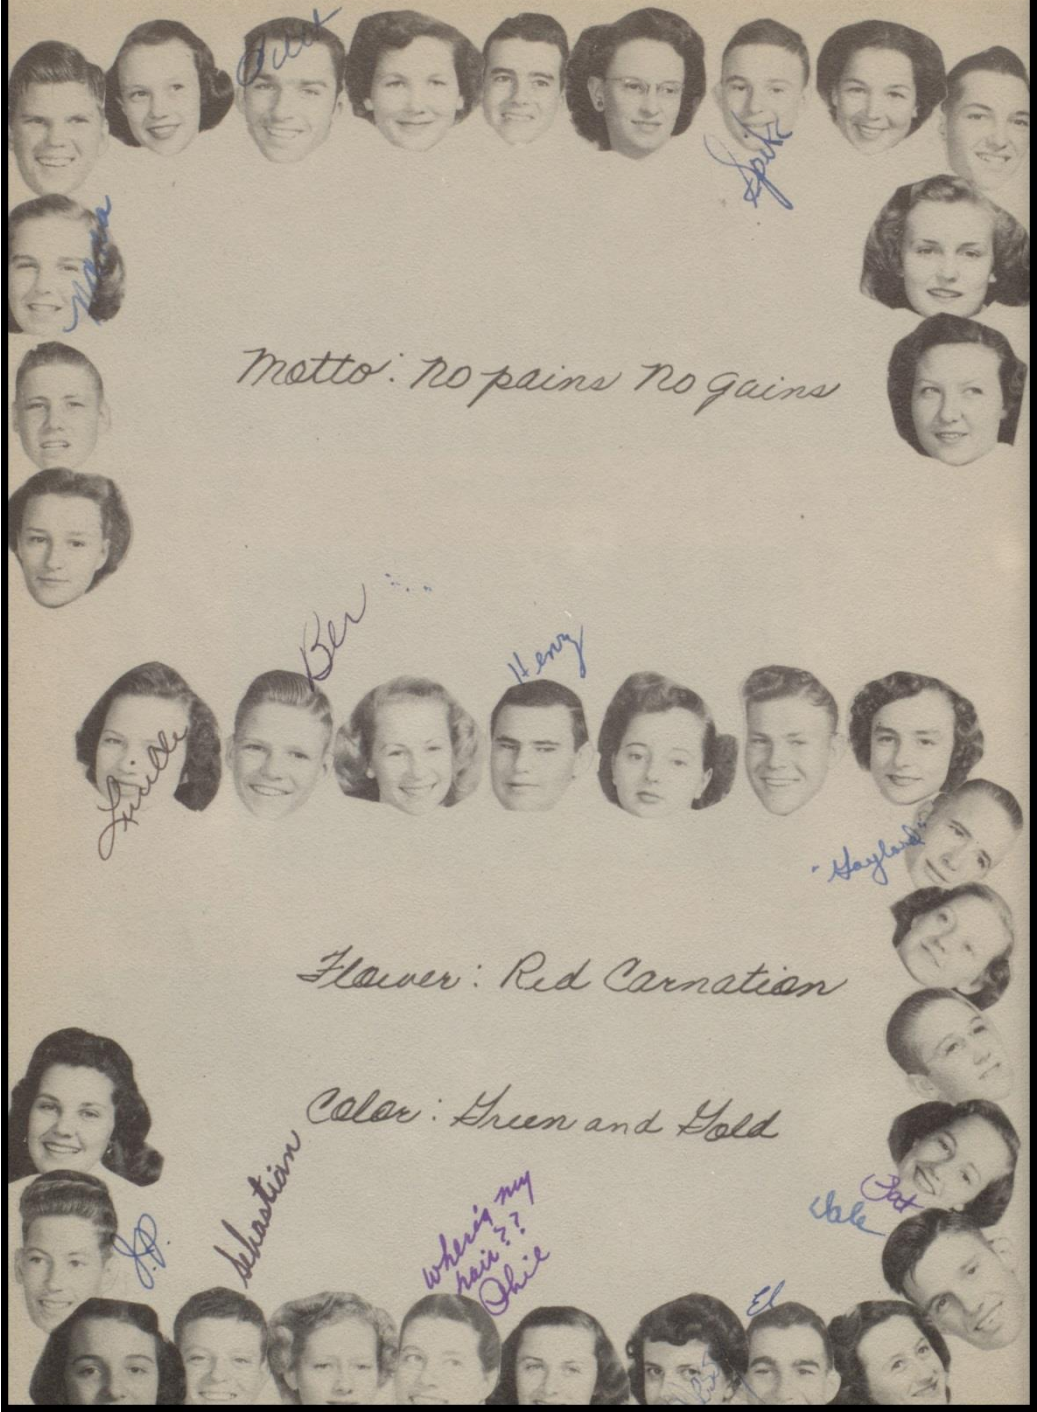 Spike
Norma
Motto: No pains No gains
Ber
Henry
Lucille
"Gaylord"
Flower: Red Carnation
Color: Green and Gold
Sebastian
where's my
hair??
Phil
Pat
Dale
J.P.
El